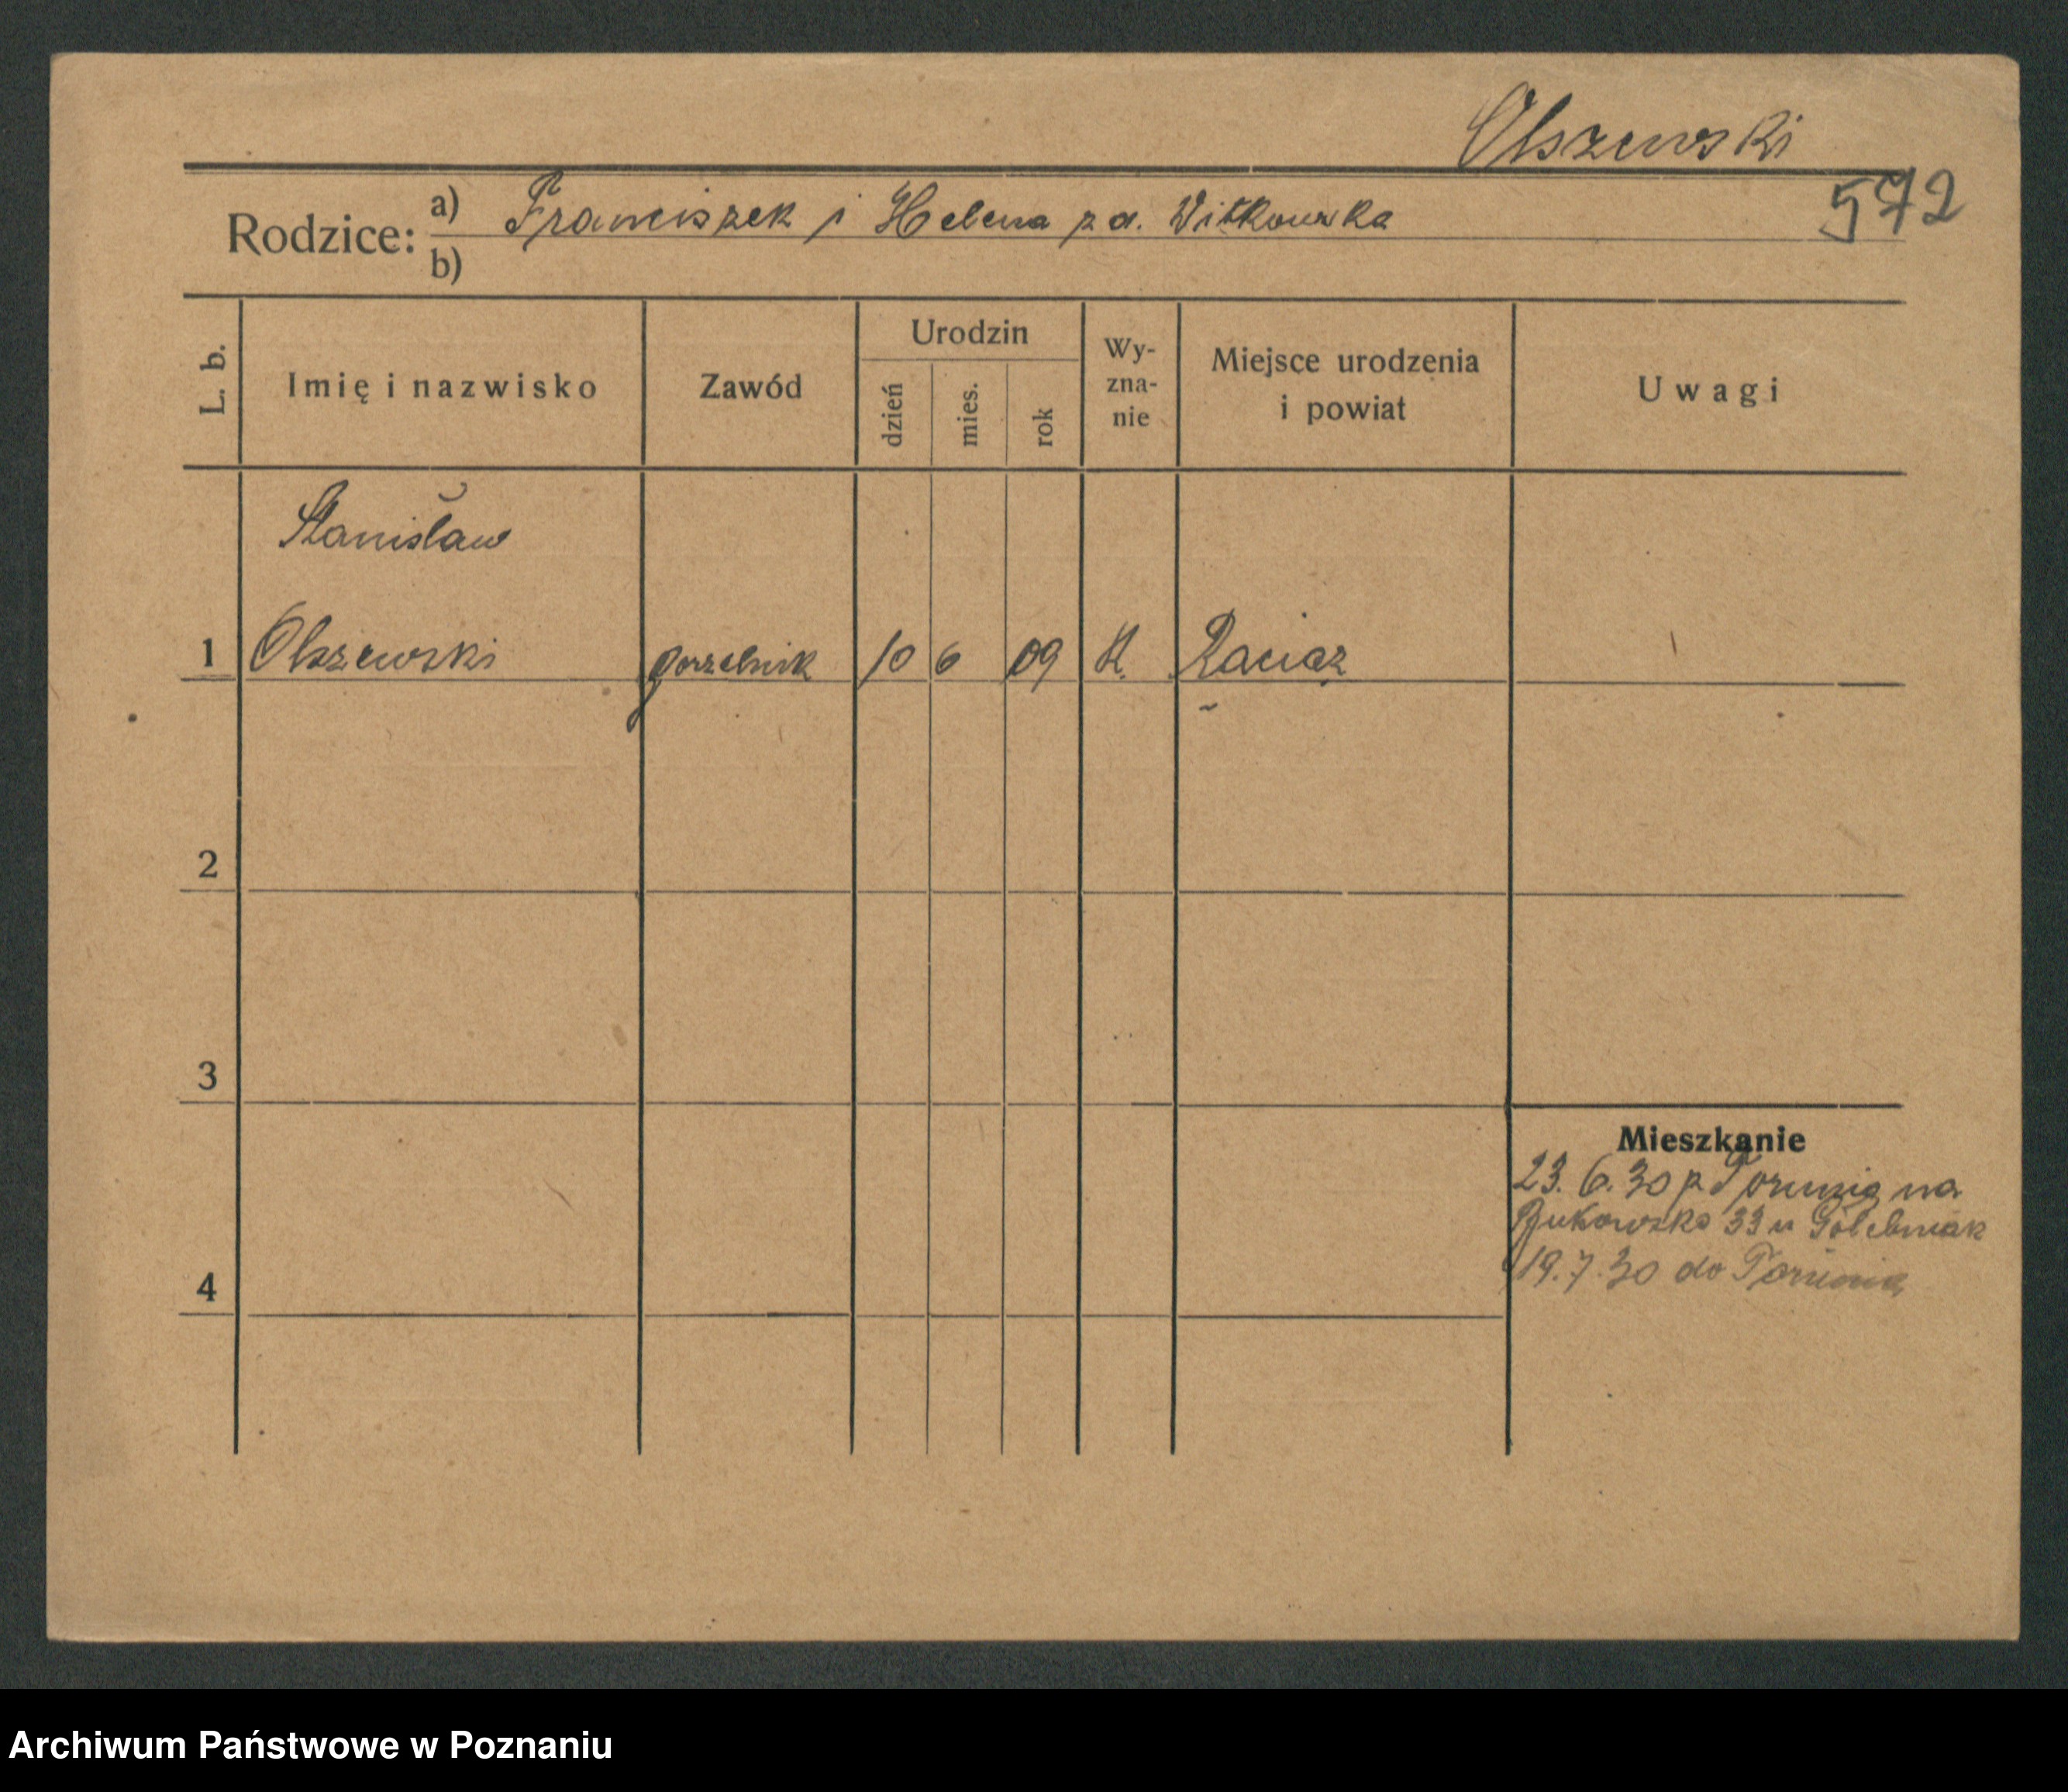 Olszewski
572
Rodzice: a) Franciszek i Helena zd. Witkowska
b)
L. b. Imię i nazwisko Zawód Urodzin dzień mies. rok Wy-zna-nie Miejsce urodzenia i powiat Uwagi
Stanisław
1 Olszewski gorzelnik 10 6 09 K. Raciąż
2
3
Mieszkanie
23. 6. 30 z Torunia na
Bukowska 33 u Golebniak
19. 7. 30 do Torunia
4
Archiwum Państwowe w Poznaniu